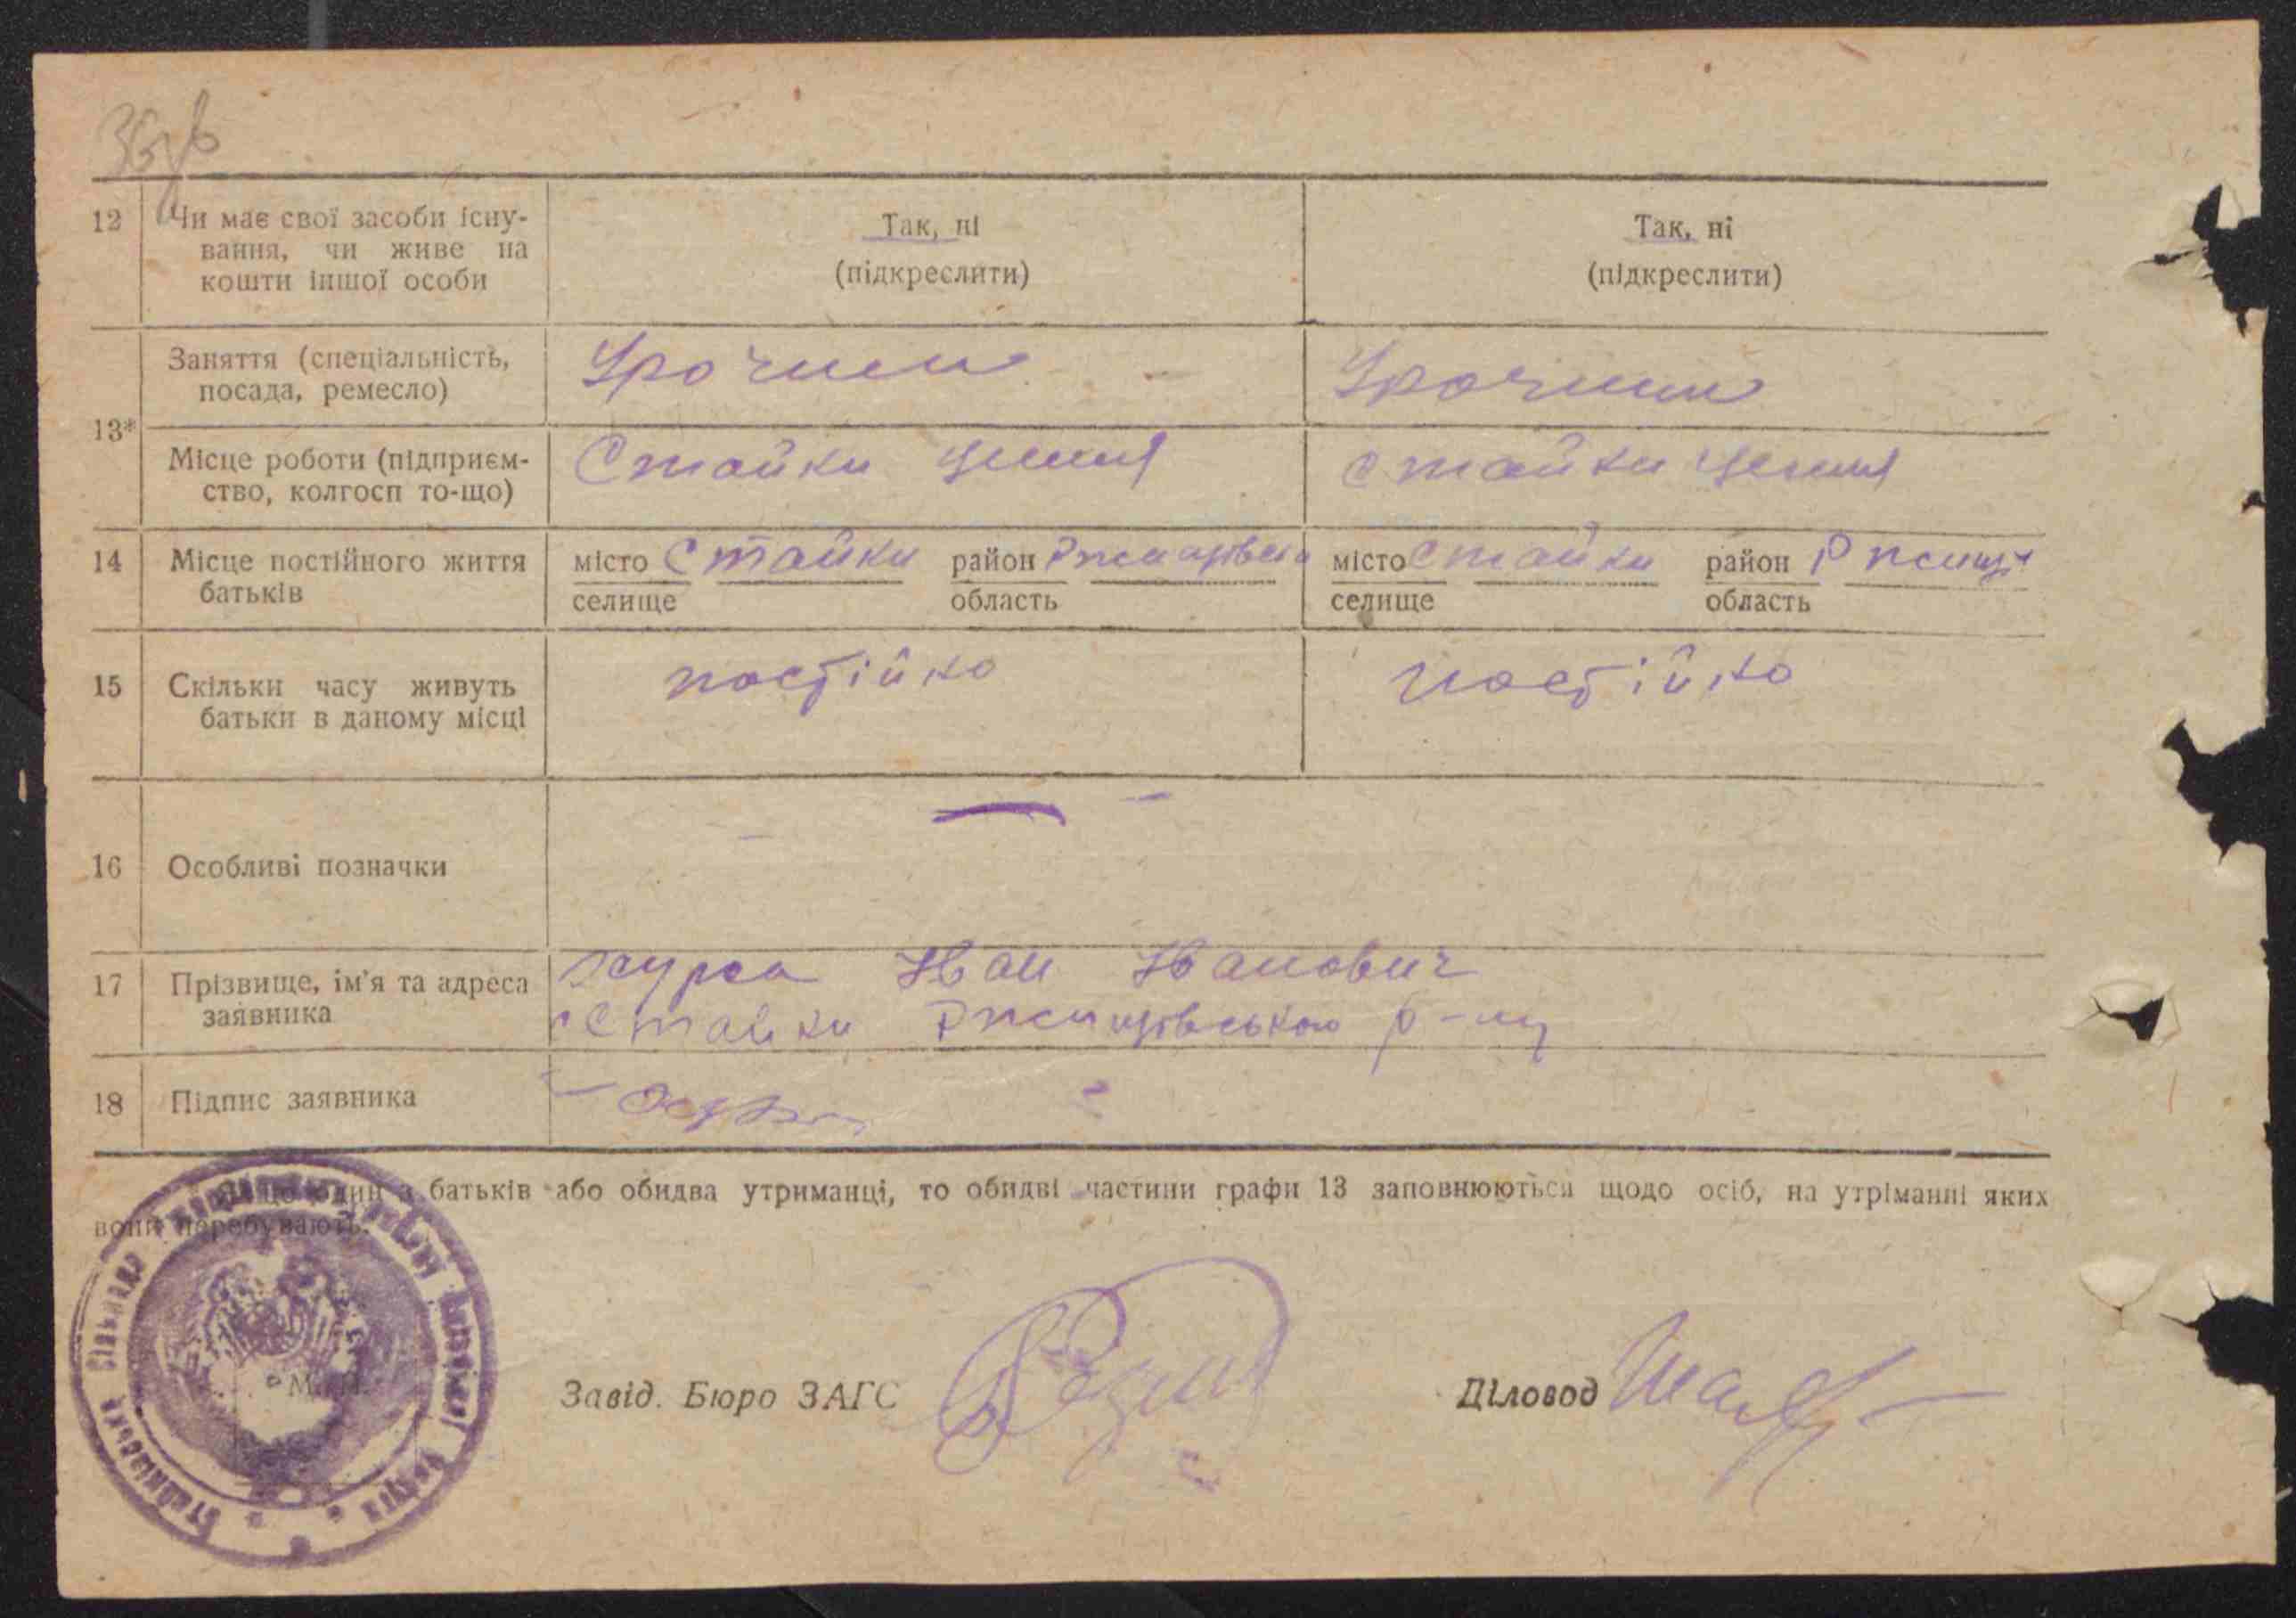 12 Чи має свої засоби існу-
вання, чи живе на
кошти іншої особи
Так, ні
(підкреслити)
Так, ні
(підкреслити)
13*
Заняття (спеціальність,
посада, ремесло)
Місце роботи (підприєм-
ство, колгосп то-що)
Стайки
Стайки
14 Місце постійного життя
батьків
місто Стайки район
селище область
місто Стайки район
селище область
15 Скільки часу живуть
батьки в даному місці
постійно
постійно
16 Особливі позначки
17 Прізвище, ім'я та адреса
заявника
Іван Іванович
Стайки Ржищівського р-ну
18 Підпис заявника
один з батьків або обидва утриманці, то обидві частини графи 13 заповнюються щодо осіб, на утріманні яких
вони перебувають.
Завід. Бюро ЗАГС
Діловод